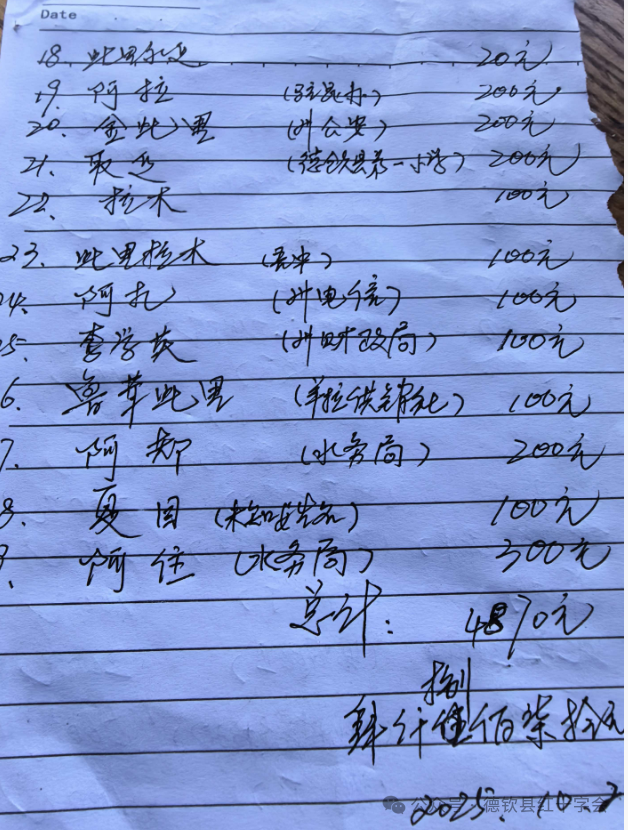 Date
18. 此里尔边 20元
19. 阿拉 (驻昆办) 200元
20. 金此里 (州公安) 200元
21. 取追 (德钦县第一小学) 200元
22. 拉木 100元
23. 此里拉木 100元
24. 阿扎 (州电信) 100元
25. 李学英 (州财政局) 100元
6. 鲁茸此里 (羊拉供销社) 100元
7. 阿郑 (水务局) 200元
8. 夏目 (未知姓名) 100元
9. 阿住 (水务局) 300元
总计: 4870元
捌
肆仟佰柒拾元
2025. 10. 2
公众号·德钦县红十字会